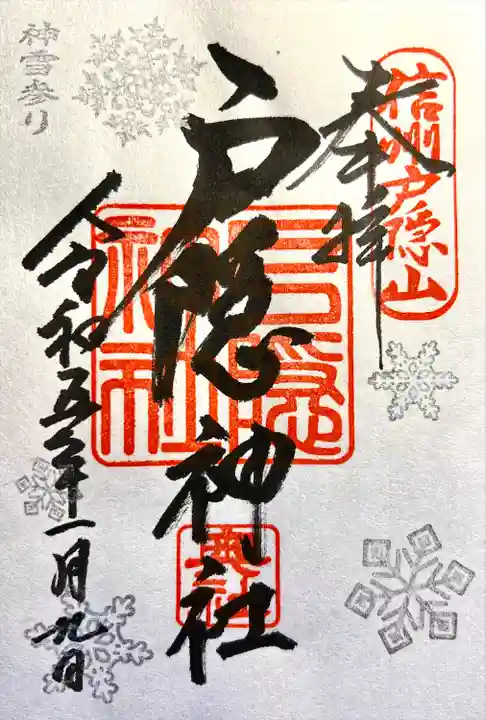 信州戸隠山
奉拝
戸隠神社
戸隠神社
令和五年一月九日
神雪参り